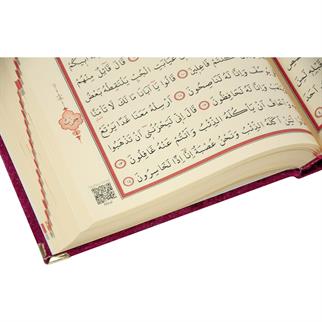 أَبِيكُمْ
قَالَ قَائِلٌ مِنْهُمْ
غَيَابَتِ الْجُبِّ يَلْتَقِطْهُ بَعْضُ
فَاعِلِينَ قَالُوا يَا أَبَانَا مَا لَكَ لَا تَأْمَنَّا
يُوسُفَ وَإِنَّا لَهُ لَنَاصِحُونَ أَرْسِلْهُ مَعَنَا غَدًا يَرْتَعْ
وَإِنَّا لَهُ لَحَافِظُونَ قَالَ إِنِّي لَيَحْزُنُنِي أَنْ تَذْهَبُوا
وَأَخَافُ أَنْ يَأْكُلَهُ الذِّئْبُ وَأَنْتُمْ عَنْهُ غَافِلُونَ
لَئِنْ أَكَلَهُ الذِّئْبُ وَنَحْنُ عُصْبَةٌ إِنَّا إِذًا لَخَاسِرُونَ